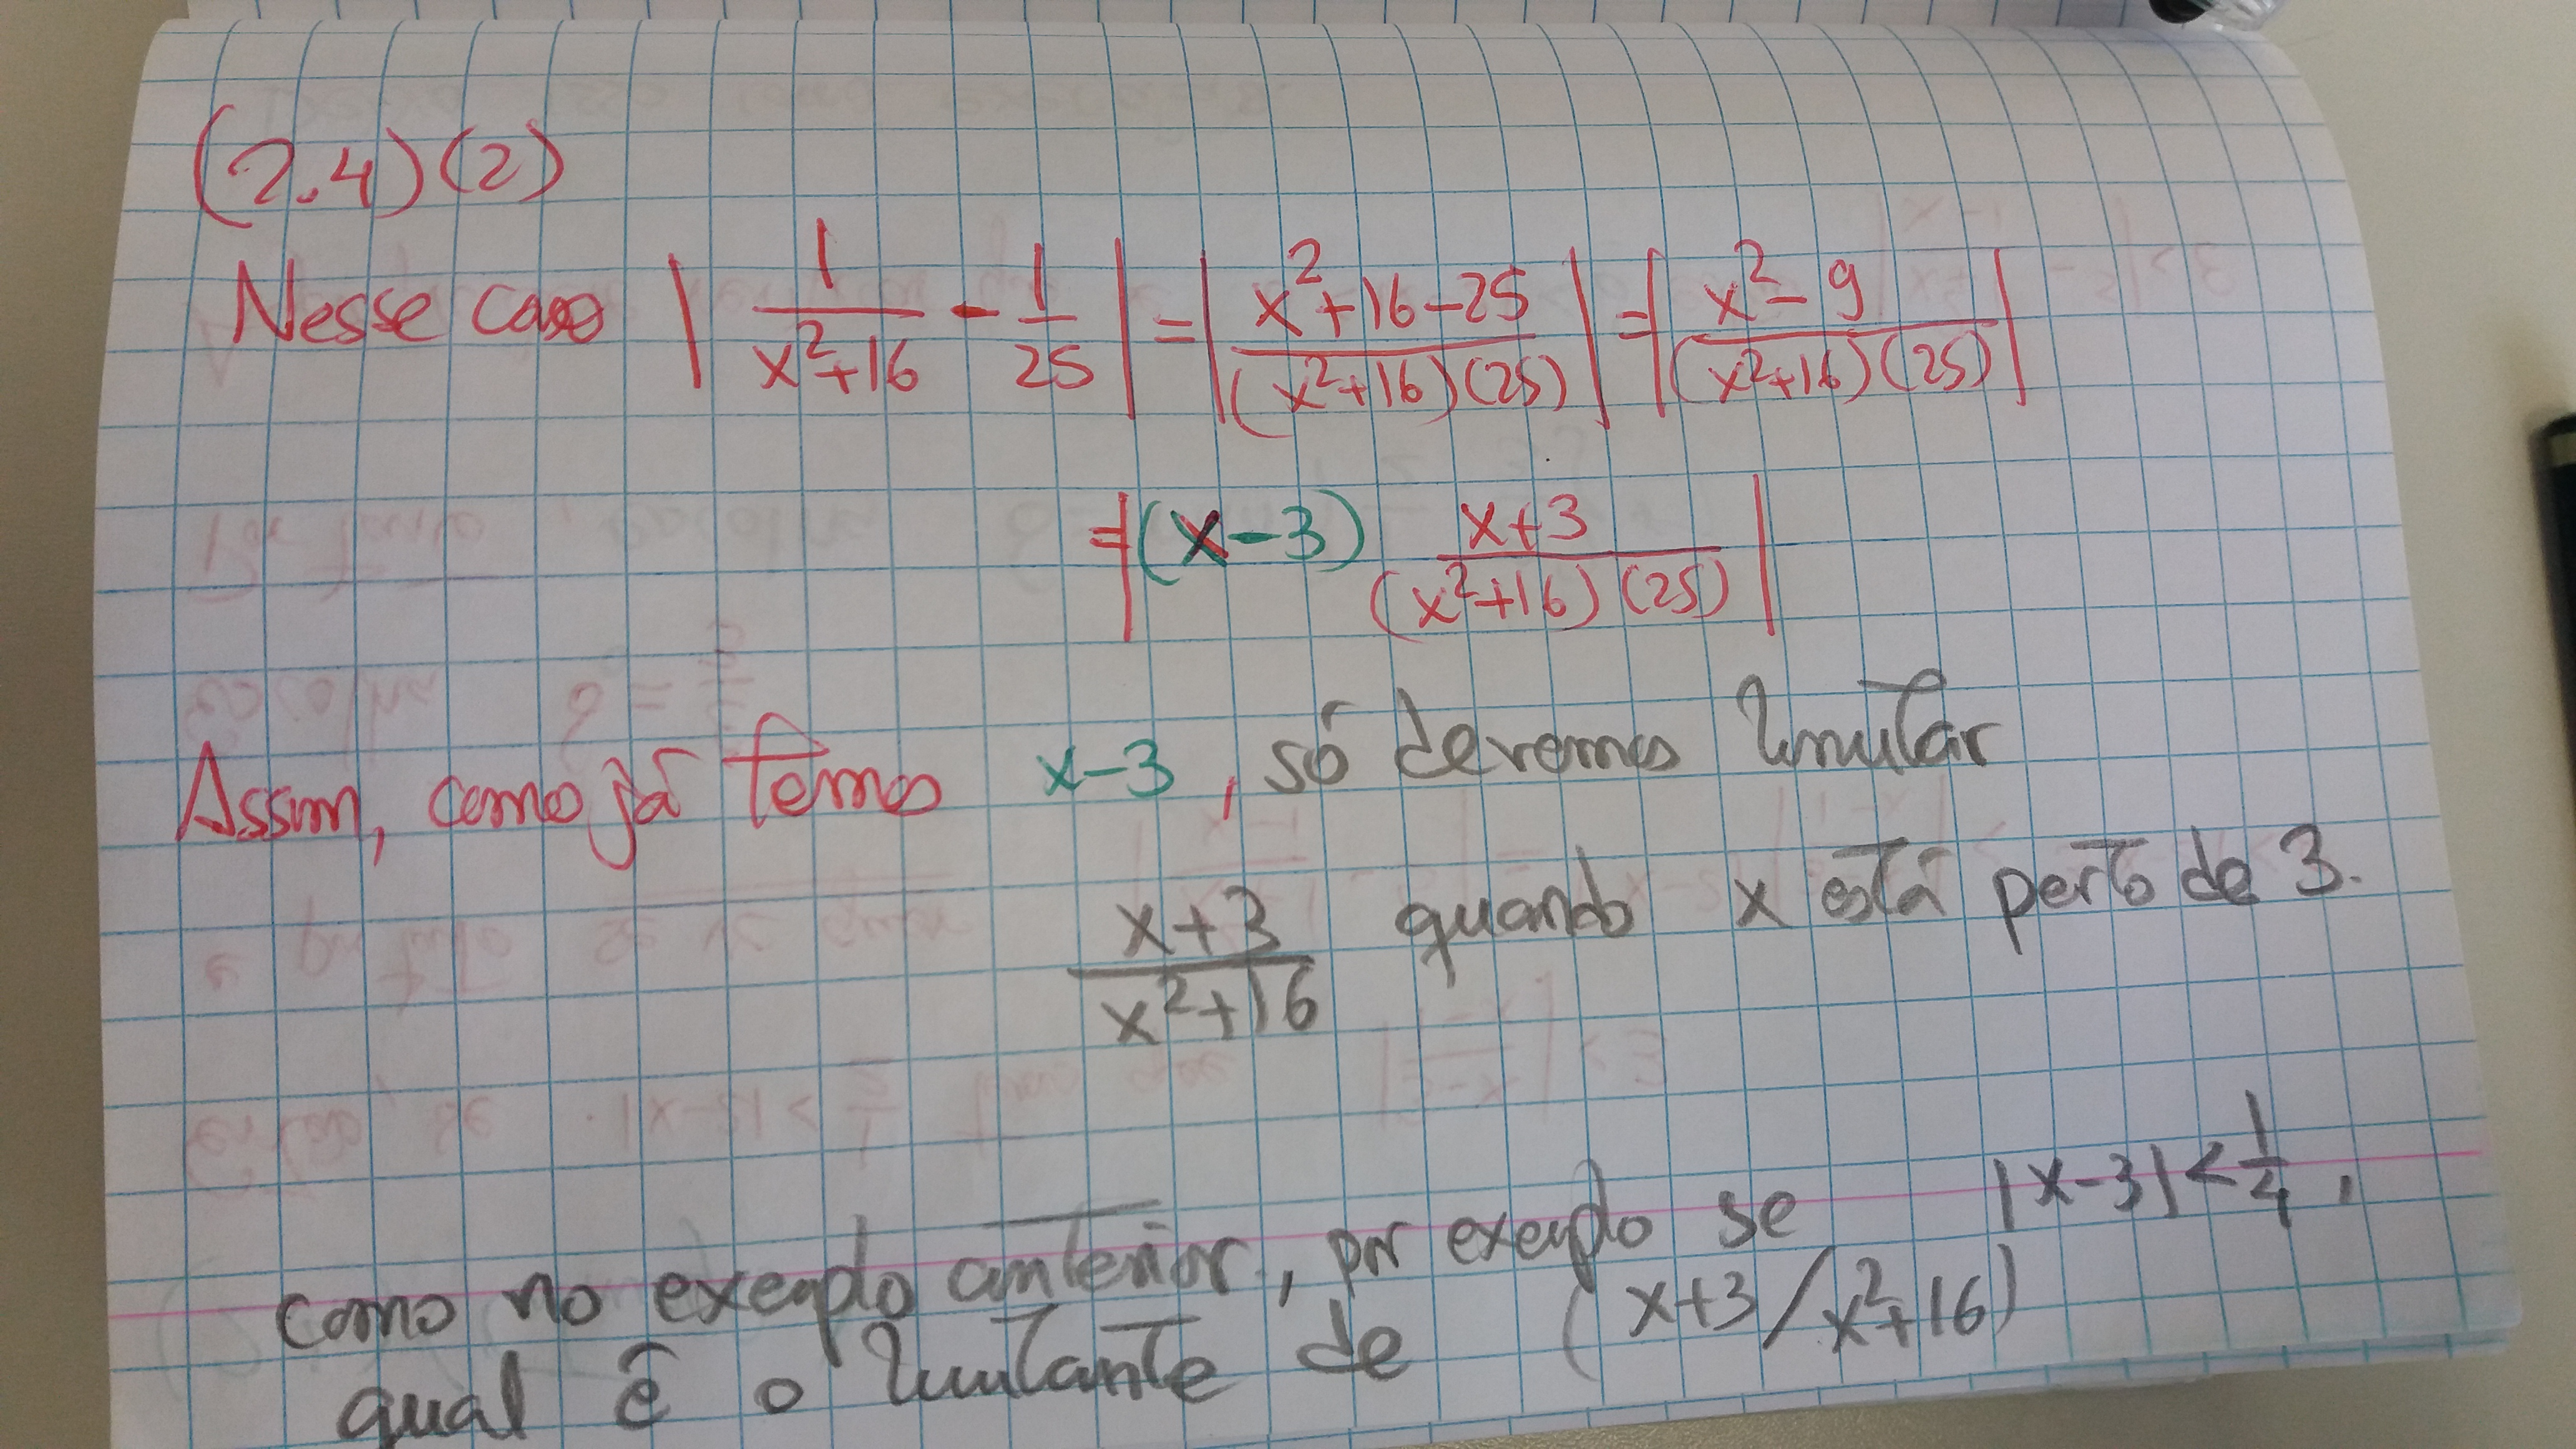 (2.4)(2)
Nesse caso | 1/(x²+16) - 1/25 | = | (x²+16-25)/((x²+16)(25)) | = | (x²-9)/((x²+16)(25)) |
= | (x-3) (x+3)/((x²+16)(25)) |
Assim, como já temos x-3, só devemos limitar
(x+3)/(x²+16) quando x está perto de 3.
como no exemplo anterior, por exemplo se |x-3| < 1/4,
qual é o limitante de (x+3/x²+16)